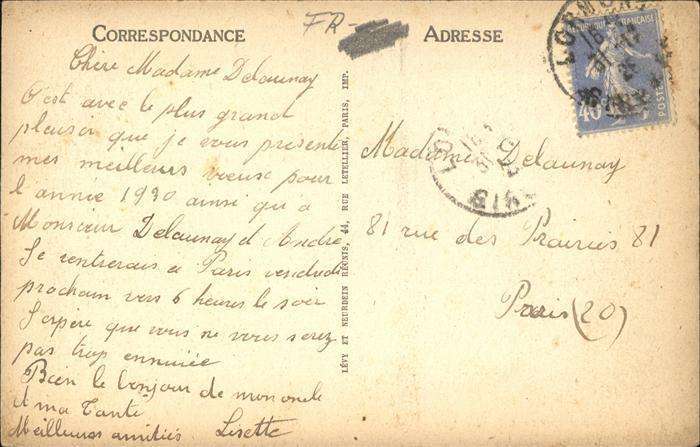 FR-
CORRESPONDANCE
ADRESSE
Chère Madame Delaunay
C'est avec le plus grand
plaisir que je vous présente
mes meilleurs voeuse pour
l'année 1930 ainsi qu'a
Monsieur Delaunay et André
Je rentrerais a Paris vendredi
prochain vers 6 heures le soir
J'espère que vous ne vous serez
pas trop ennuiée
Bien le bonjour de mon oncle
et ma Tante
Meilleures amitiés Lisette
LÉVY ET NEURDEIN RÉUNIS, 44, RUE LETELLIER, PARIS, IMP.
Madame Delaunay
81 rue des Prairies 81
Paris (20)
LORMONT
40
POSTES